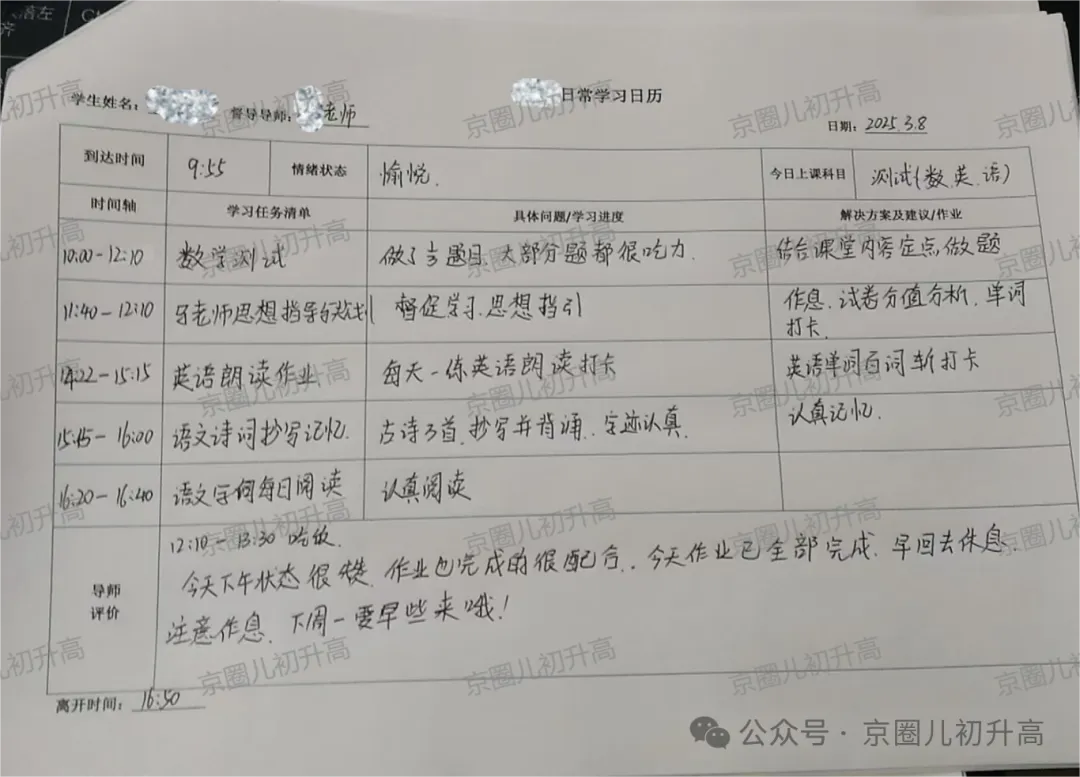 日常学习日历
学生姓名：
督导导师： 老师
日期：2025.3.8
到达时间 9:55 情绪状态 愉悦. 今日上课科目 测试(数.英.语)
时间轴 学习任务清单 具体问题/学习进度 解决方案及建议/作业
10:00-12:10 数学测试 做了 题目.大部分题都很吃力. 结合课堂内容定点做题
11:40-12:10 老师思想指导 督促学习.思想指引 作息.试卷分值分析.单词
打卡.
14:22-15:15 英语朗读作业. 每天一练英语朗读打卡 英语单词百词斩打卡
15:15-16:00 语文诗词抄写记忆. 古诗3首.抄写并背诵.字迹认真. 认真记忆.
16:20-16:40 语文字词每日阅读 认真阅读
导师
评价
12:10-13:30 吃饭.
今天下午状态很棒.作业也完成的很配合..今天作业已全部完成.早回去休息.
注意作息.下周一要早些来哦!
离开时间：16:50
公众号·京圈儿初升高
京圈儿初升高